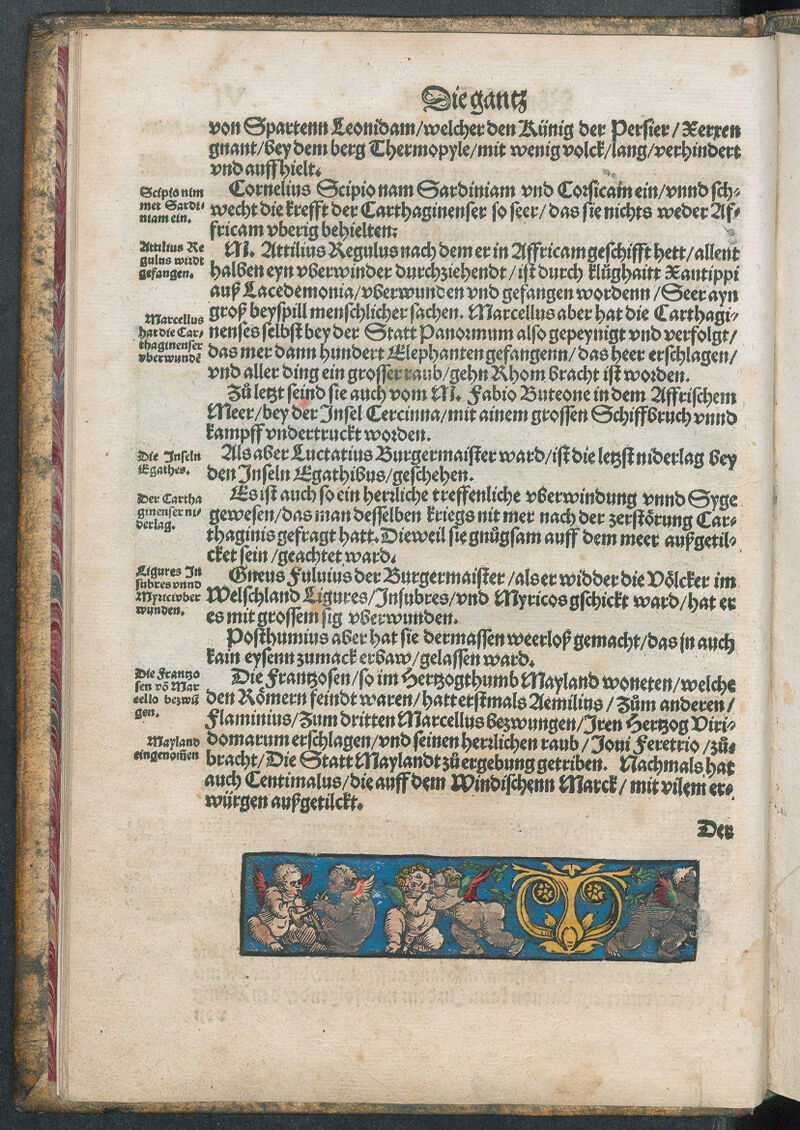 Die gantz
von Spartenn Leonidam/welcher den Künig der Persier/Xerxen
gnant/bey dem berg Thermopyle/mit wenig volck/lang/verhindert
vnd auffhielt.
Scipio nim
met Sardi⸗
niam ein.
Cornelius Scipio nam Sardiniam vnd Corsicam ein/vnnd sch⸗
wecht die krefft der Carthaginenser so seer/das sie nichts weder Af⸗
fricam vberig behielten:
Attilius Re
gulus wirdt
gefangen.
M. Attilius Regulus nach dem er in Affricam geschifft hett/allent
halben eyn vberwinder durchziehendt/ist durch klůghaitt Xantippi
auß Lacedemonia/vberwunden vnd gefangen wordenn/Seer ayn
groß beyspill menschlicher sachen. Marcellus aber hat die Carthagi⸗
Marcellus
hat die Car⸗
thaginenser
vberwundē
nenses selbst bey der Statt Panormum also gepeynigt vnd verfolgt/
das mer dann hundert Elephanten gefangenn/das heer erschlagen/
vnd aller ding ein grosser raub/gehn Rhom bracht ist worden.
Zů letzt seind sie auch vom M. Fabio Buteone in dem Affrischem
Meer/bey der Insel Cercinna/mit ainem grossen Schiffbruch vnnd
kampff vndertruckt worden.
Die Inseln
Egathes.
Als aber Luctatius Burgermaister ward/ist die letzst niderlag bey
den Inseln Egathibus/geschehen.
Der Cartha
ginenser ni⸗
derlag.
Es ist auch so ein herrliche treffenliche vberwindung vnnd Syge
gewesen/das man desselben kriegs nit mer nach der zerstörung Car⸗
thaginis gefragt hatt. Dieweil sie gnůgsam auff dem meer außgetil⸗
cket sein/geachtet ward.
Ligures In
subres vnnd
Myrici vber
wunden.
Gneus Fuluius der Burgermaister/als er widder die Völcker im
Welschland Ligures/Insubres/vnd Myricos gschickt ward/hat er
es mit grossem sig vberwunden.
Posthumius aber hat sie dermassen weerloß gemacht/das jn auch
kain eysenn zum ackerbaw/gelassen ward.
Die Frantzo
sen vō Mar
cello bezwū
gen.
Die Frantzosen/so im Hertzogthumb Mayland woneten/welche
den Römern feindt waren/hatt erstmals Aemilius/Zům anderen/
Flaminius/Zum dritten Marcellus bezwungen/Iren Hertzog Viri⸗
Mayland
eingenom̄en
domarum erschlagen/vnd seinen herrlichen raub/Joui Feretrio/zů⸗
bracht/Die Statt Maylandt zů ergebung getriben. Nachmals hat
auch Centimalus/die auff dem Windischenn Marck/mit vilem er⸗
würgen außgetilckt.
Der